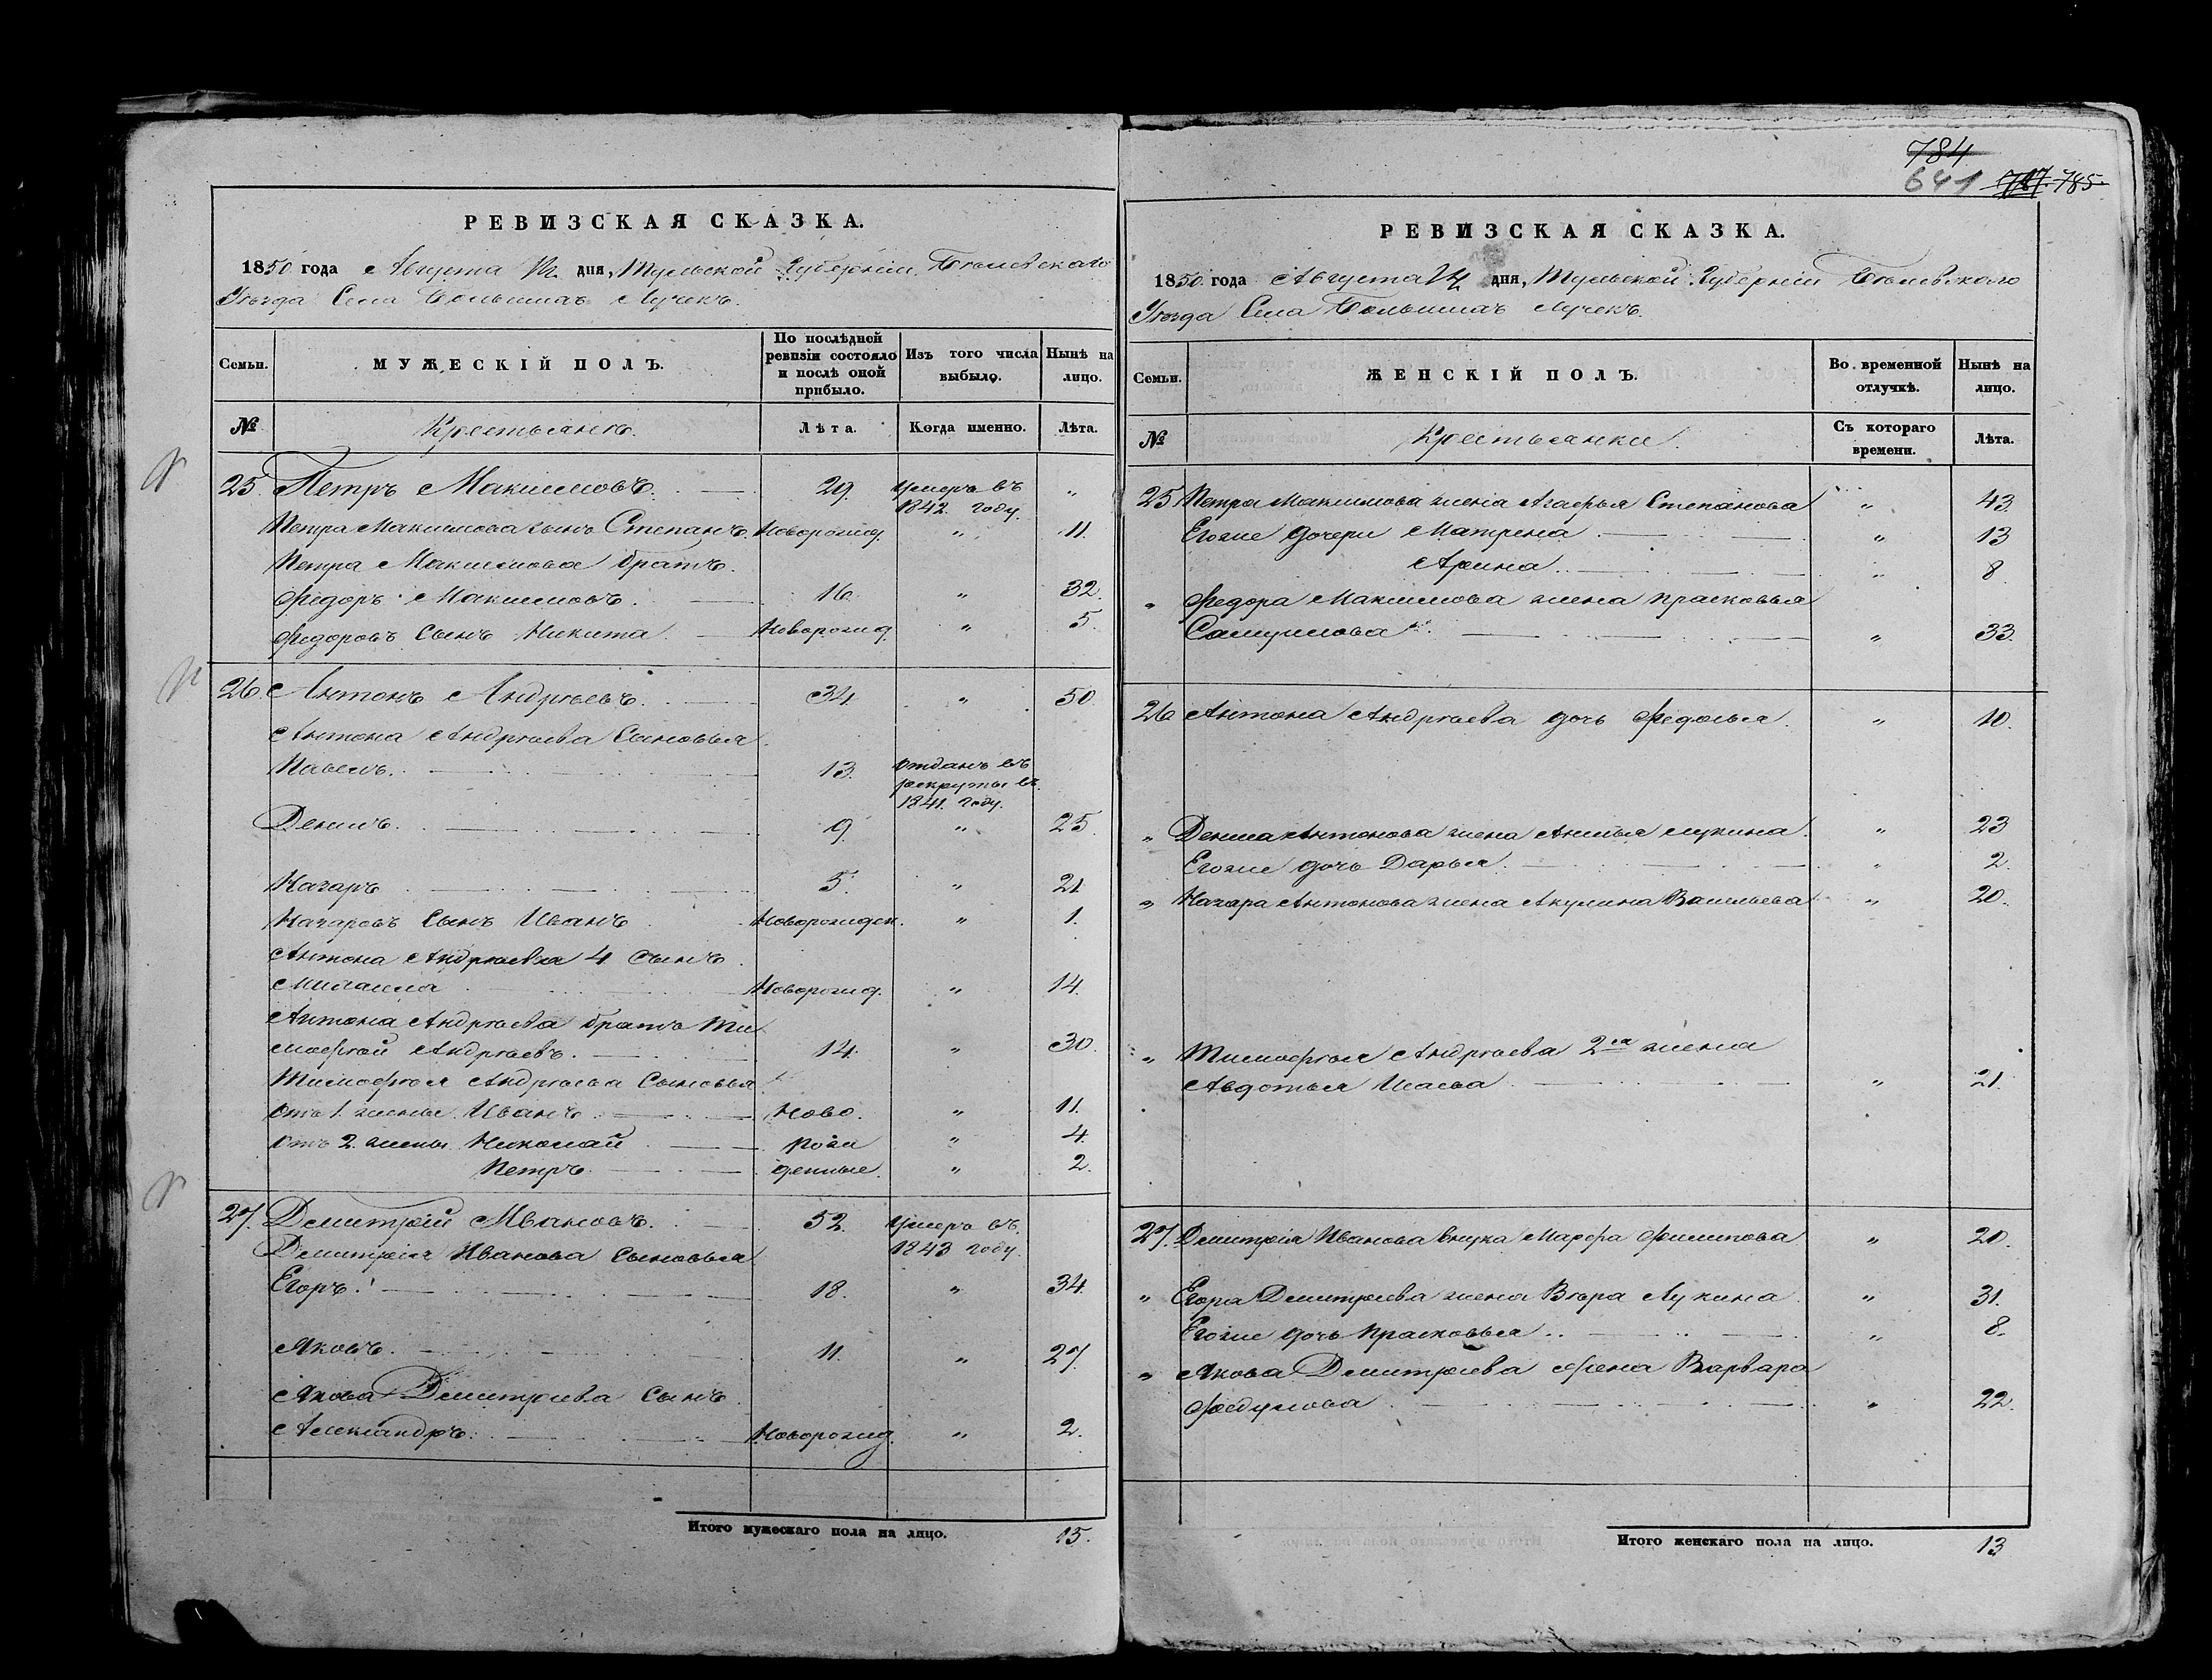 РЕВИЗСКАЯ СКАЗКА.
1850 года Августа дня, Тульской Губерніи, Бѣлевскаго
Уѣзда Села Большихъ Лучекъ.
Семьи.
МУЖЕСКІЙ ПОЛЪ.
По послѣдней ревизіи состояло и послѣ оной прибыло.
Изъ того числа выбыло.
Нынѣ на лицо.
№
Крестьянъ.
Лѣта.
Когда именно.
Лѣта.
25. Петръ Максимовъ. 29. умеръ въ 1842. году. "
Петра Максимова сынъ Степанъ. Новорожд. " 11.
Петра Максимова братъ.
Федоръ Максимовъ. 16. " 32.
Федоровъ Сынъ Никита. Новорожд. " 5.
26. Антонъ Андрѣевъ. 34 " 50.
Антона Андрѣева Сыновья
Павелъ. 13. отданъ въ рекруты въ 1841. году.
Денисъ. 9. " 25.
Назаръ 5. " 21
Назаровъ Сынъ Иванъ Новорожден. " 1.
Антона Андрѣева 4 Сынъ
Михаила Новорожд. " 14.
Антона Андрѣева братъ Ти
мофѣй Андрѣевъ. 14. " 30.
Тимофѣя Андрѣева Сыновья
отъ 1. жены Иванъ Ново. " 11.
отъ 2. жены Николай рож " 4.
Петръ. денные. " 2.
27. Демитрій Ивановъ. 52. умеръ въ 1843 году.
Демитрія Иванова Сыновья
Егоръ. 18. " 34.
Яковъ. 11. " 27.
Якова Демитрева Сынъ
Александръ. Новорожд. " 2.
Итого мужескаго пола на лицо. 15.
784
641 785
РЕВИЗСКАЯ СКАЗКА.
1850 года Августа дня, Тульской Губерніи Бѣлевскаго
Уѣзда Села Большихъ Лучекъ.
Семьи.
ЖЕНСКІЙ ПОЛЪ.
Во временной отлучкѣ.
Нынѣ на лицо.
№
Крестьянки.
Съ котораго времени.
Лѣта.
25 Петра Максимова жена Агафья Степанова " 43.
Егоже дочери Матрена " 13
Арина " 8.
" Федора Максимова жена Прасковья
Самуилова " 33.
26 Антона Андрѣева дочь Федосья " 10.
" Дениса Антонова жена Анисья Лукина. " 23
Егоже дочь Дарья " 2.
" Назара Антонова жена Акулина Васильева " 20.
" Тимофѣя Андрѣева 2я жена
Авдотья Исаева " 21.
27. Демитрія Иванова внука Марфа Филипова " 20.
" Егора Демитрева жена Вѣра Лукина " 31.
Егоже дочь Прасковья " 8.
" Якова Демитрева жена Варвара
" 22.
Итого женскаго пола на лицо. 13